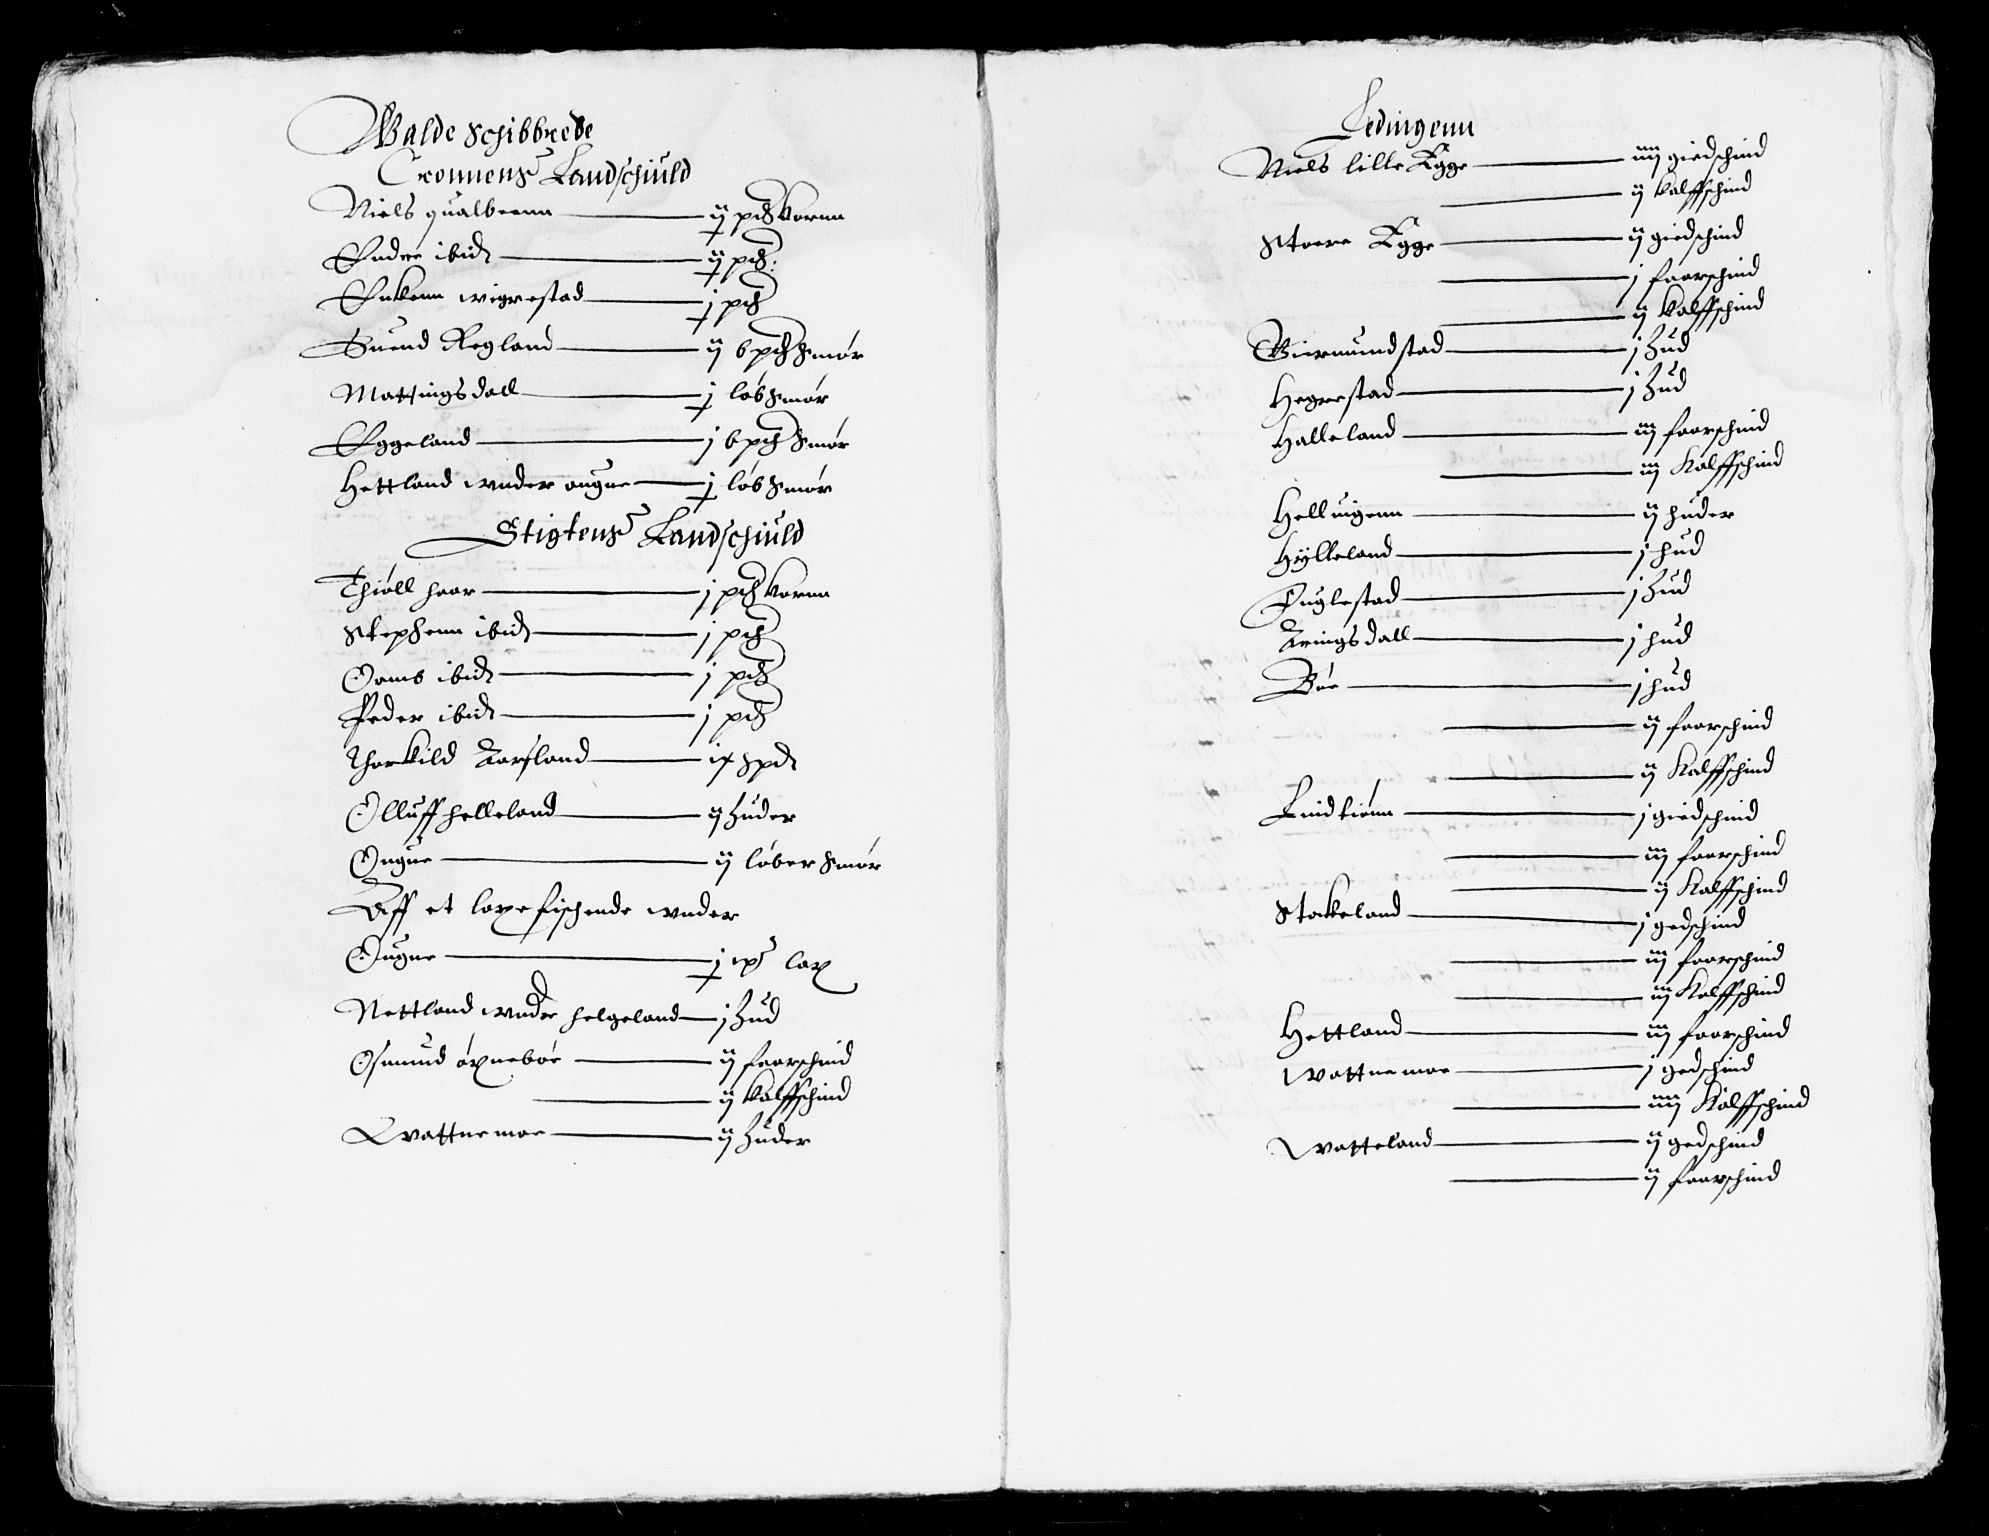 Walde Schibbrede
Cronens Landschiuld
Niels qualbeenn — ij pd kornn
Endre ibid — ij pd:
Enkenn wigrestad — j pd
Suend Regland — ij bpd smør
Mattingsdall — j løb smør
Eggeland — j bpd smør
Hettland wnder augne — j løb smør
Stigtens Landschiuld
Thiøll haar — j pd kornn
Stephenn ibid — j pd
Oamb ibid — j pd
Peder ibid — j pd
Thorkild Aarsland — ix spd
Olluff helleland — ij huder
Ougne — ij løber smør
Aff et laxefischende wnder
Ougne — j lax
Nettland wnder helgeland — j hud
Osmund øxnebøe — ij faarschind
— ij kalffschind
Wattnemoe — ij huder
Ledingenn
Niels lille Egge — iiij giedschind
— ij kalffschind
Stoere Egge — ij giedschind
— j faarschind
— ij kalffschind
Biermundstad — j hud
Hegrestad — j hud
Halleland — iij faarschind
— iij kalffschind
Helluigenn — ij huder
Hylleland — j hud
Fuglestad — j hud
Aringsdall — j hud
Bøe — j hud
— ij faarschind
— ij kalffschind
Lindtiønn — j giedschind
— iiij faarschind
— ij kalffschind
Stokeland — j gedschind
— iij faarschind
— iij kalffschind
Hettland — iiij faarschind
Wattnemoe — j gedschind
— iiij kalffschind
Watteland — ij gedschind
— ij faarschind